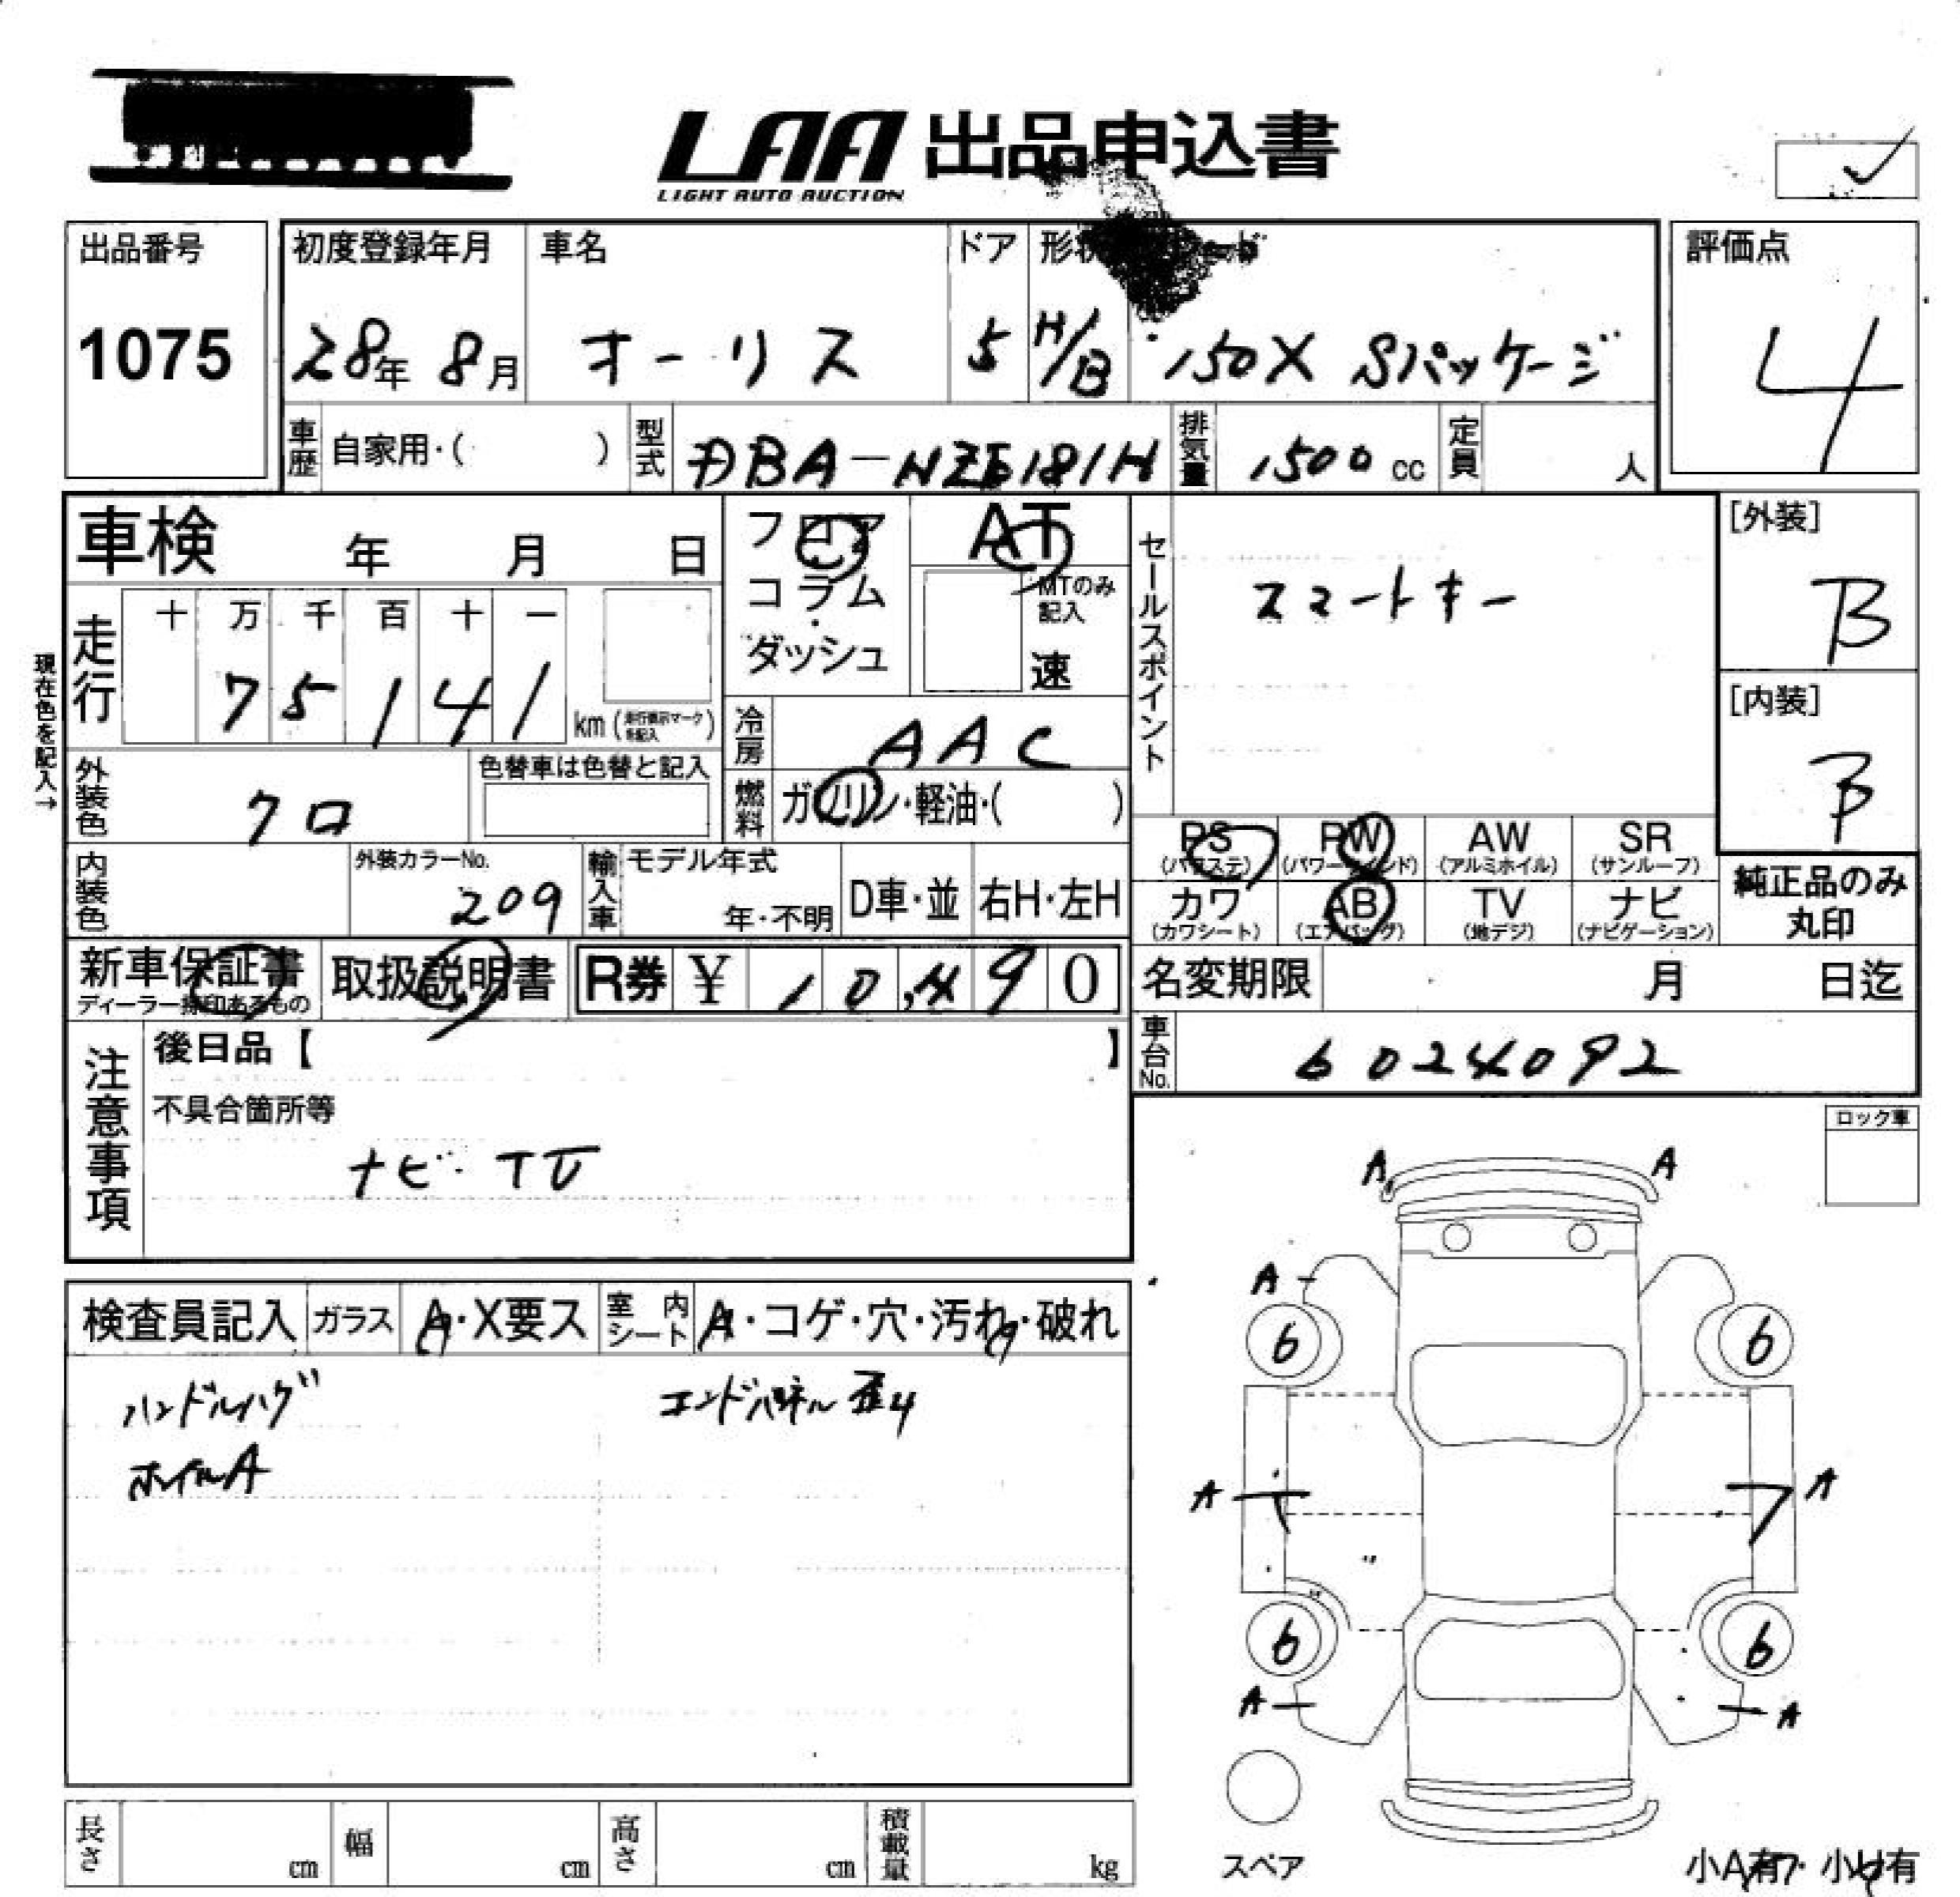 LAA 出品申込書
LIGHT AUTO AUCTION
出品番号
1075
初度登録年月
28年 8月
車名
オーリス
ドア
5
形状
H/B
150X Sパッケージ
評価点
4
車歴 自家用・( )
型式 DBA-NZE181H
排気量 1500 cc
定員 人
車検 年 月 日
フロア
コラム
ダッシュ
AT
MTのみ
記入
速
セールスポイント
スマートキー
[外装]
B
[内装]
B
現在色を記入→
走行
十 万 千 百 十 一
7 5 1 4 1
km (走行表示マークを記入)
冷房 AAC
外装色 クロ
色替車は色替と記入
燃料 ガソリン・軽油・( )
内装色
外装カラーNo.
209
輸入車
モデル年式
年・不明
D車・並
右H・左H
PS
(パワステ)
PW
(パワーウインド)
AW
(アルミホイル)
SR
(サンルーフ)
カワ
(カワシート)
AB
(エアバッグ)
TV
(地デジ)
ナビ
(ナビゲーション)
純正品のみ
丸印
新車保証書
ディーラー捺印あるもの
取扱説明書
R券 ¥ 10,490
名変期限 月 日迄
車台No. 6024092
注意事項
後日品【 】
不具合箇所等
ナビ・TV
ロック車
検査員記入
ガラス A・X要ス
室内シート A・コゲ・穴・汚れ・破れ
ハンドルハゲ
ホイルA
エンドパネル歪み
A A
A
6 6
A A
6 6
A A
スペア
長さ cm
幅 cm
高さ cm
積載量 kg
小A有・小U有